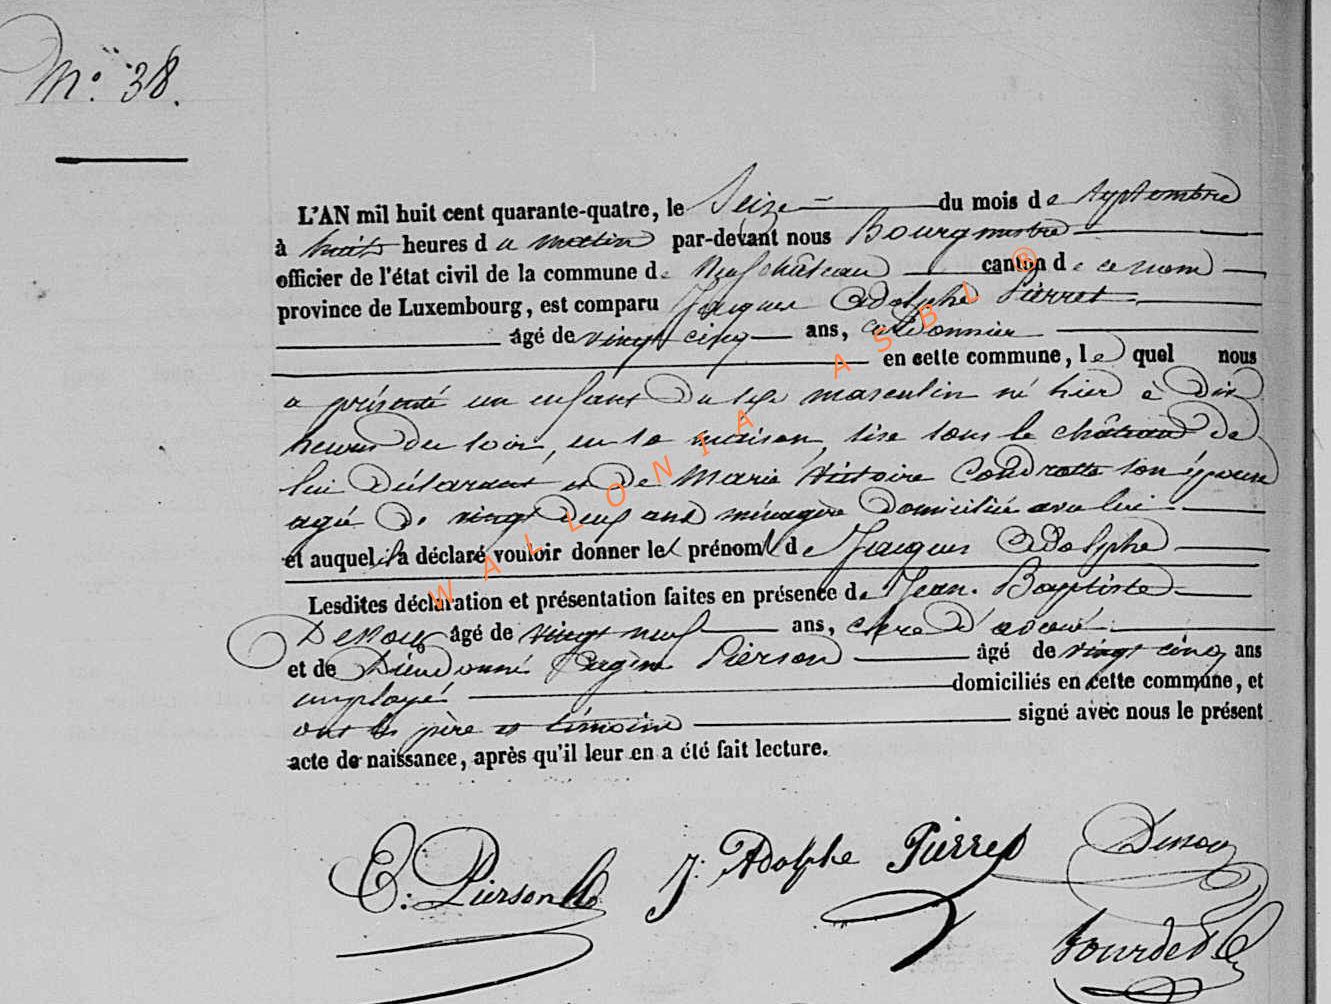 N° 38.
L'AN mil huit cent quarante-quatre, le Seize du mois de Septembre
à huit heures du matin par-devant nous Bourgmestre
officier de l'état civil de la commune de Neufchâteau canton de ce nom
province de Luxembourg, est comparu Jacques Adolphe Pierret
âgé de vingt cinq ans, cordonnier
en cette commune, lequel nous
a présenté un enfant du sexe masculin né hier à dix
heures du soir, en sa maison, sise sous le château de
lui déclarant et de Marie Victoire Condrotte son épouse
agée de vingt neuf ans ménagère domiciliée avec lui
et auquel il a déclaré vouloir donner les prénoms de Jacques Adolphe
Lesdites déclaration et présentation faites en présence de Jean Baptiste
Denoy âgé de vingt neuf ans, clerc d'avoué
et de Dieudonné Eugène Pierson âgé de vingt cinq ans
employé domiciliés en cette commune, et
ont les père et témoins signé avec nous le présent
acte de naissance, après qu'il leur en a été fait lecture.
WALLONIA ASBL ®
E. Pierson J. Adolphe Pierret Denoy